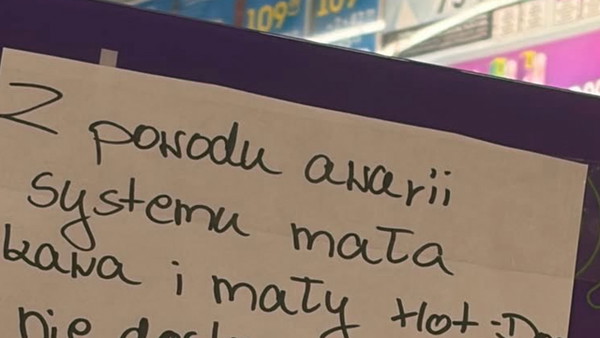 109
107
Z powodu awarii
systemu mała
kawa i mały Hot-Do
nie dost